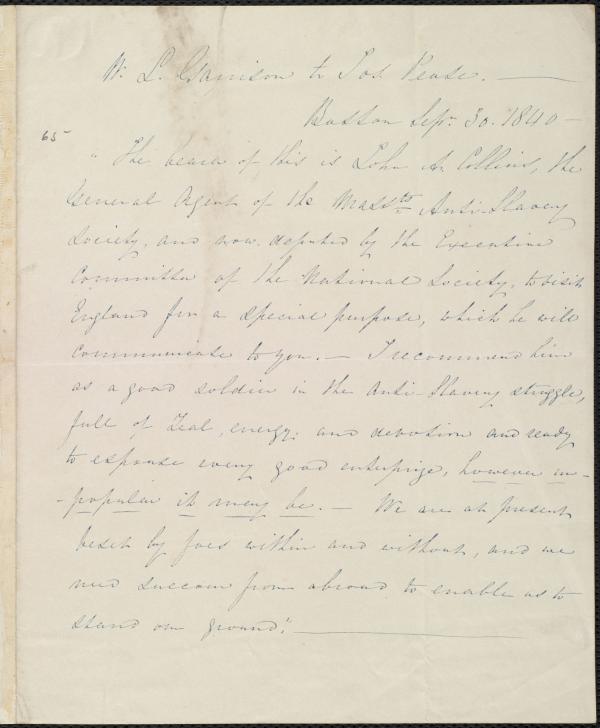 W. L. Garrison to Jos. Pease. —
Boston Sepr. 30. 1840 —
65
" The bearer of this is John A. Collins, the
General Agent of the Masstts Anti-Slavery
Society, and now deputed by the Executive
Committee of the National Society, to visit
England for a special purpose, which he will
communicate to you. — I recommend him
as a good soldier in the Anti-Slavery struggle,
full of Zeal, energy; and devotion and ready
to espouse every good enterprize, however un-
-popular it may be. — We are at present
beset by foes within and without, and we
need succour from abroad to enable us to
stand our ground." —